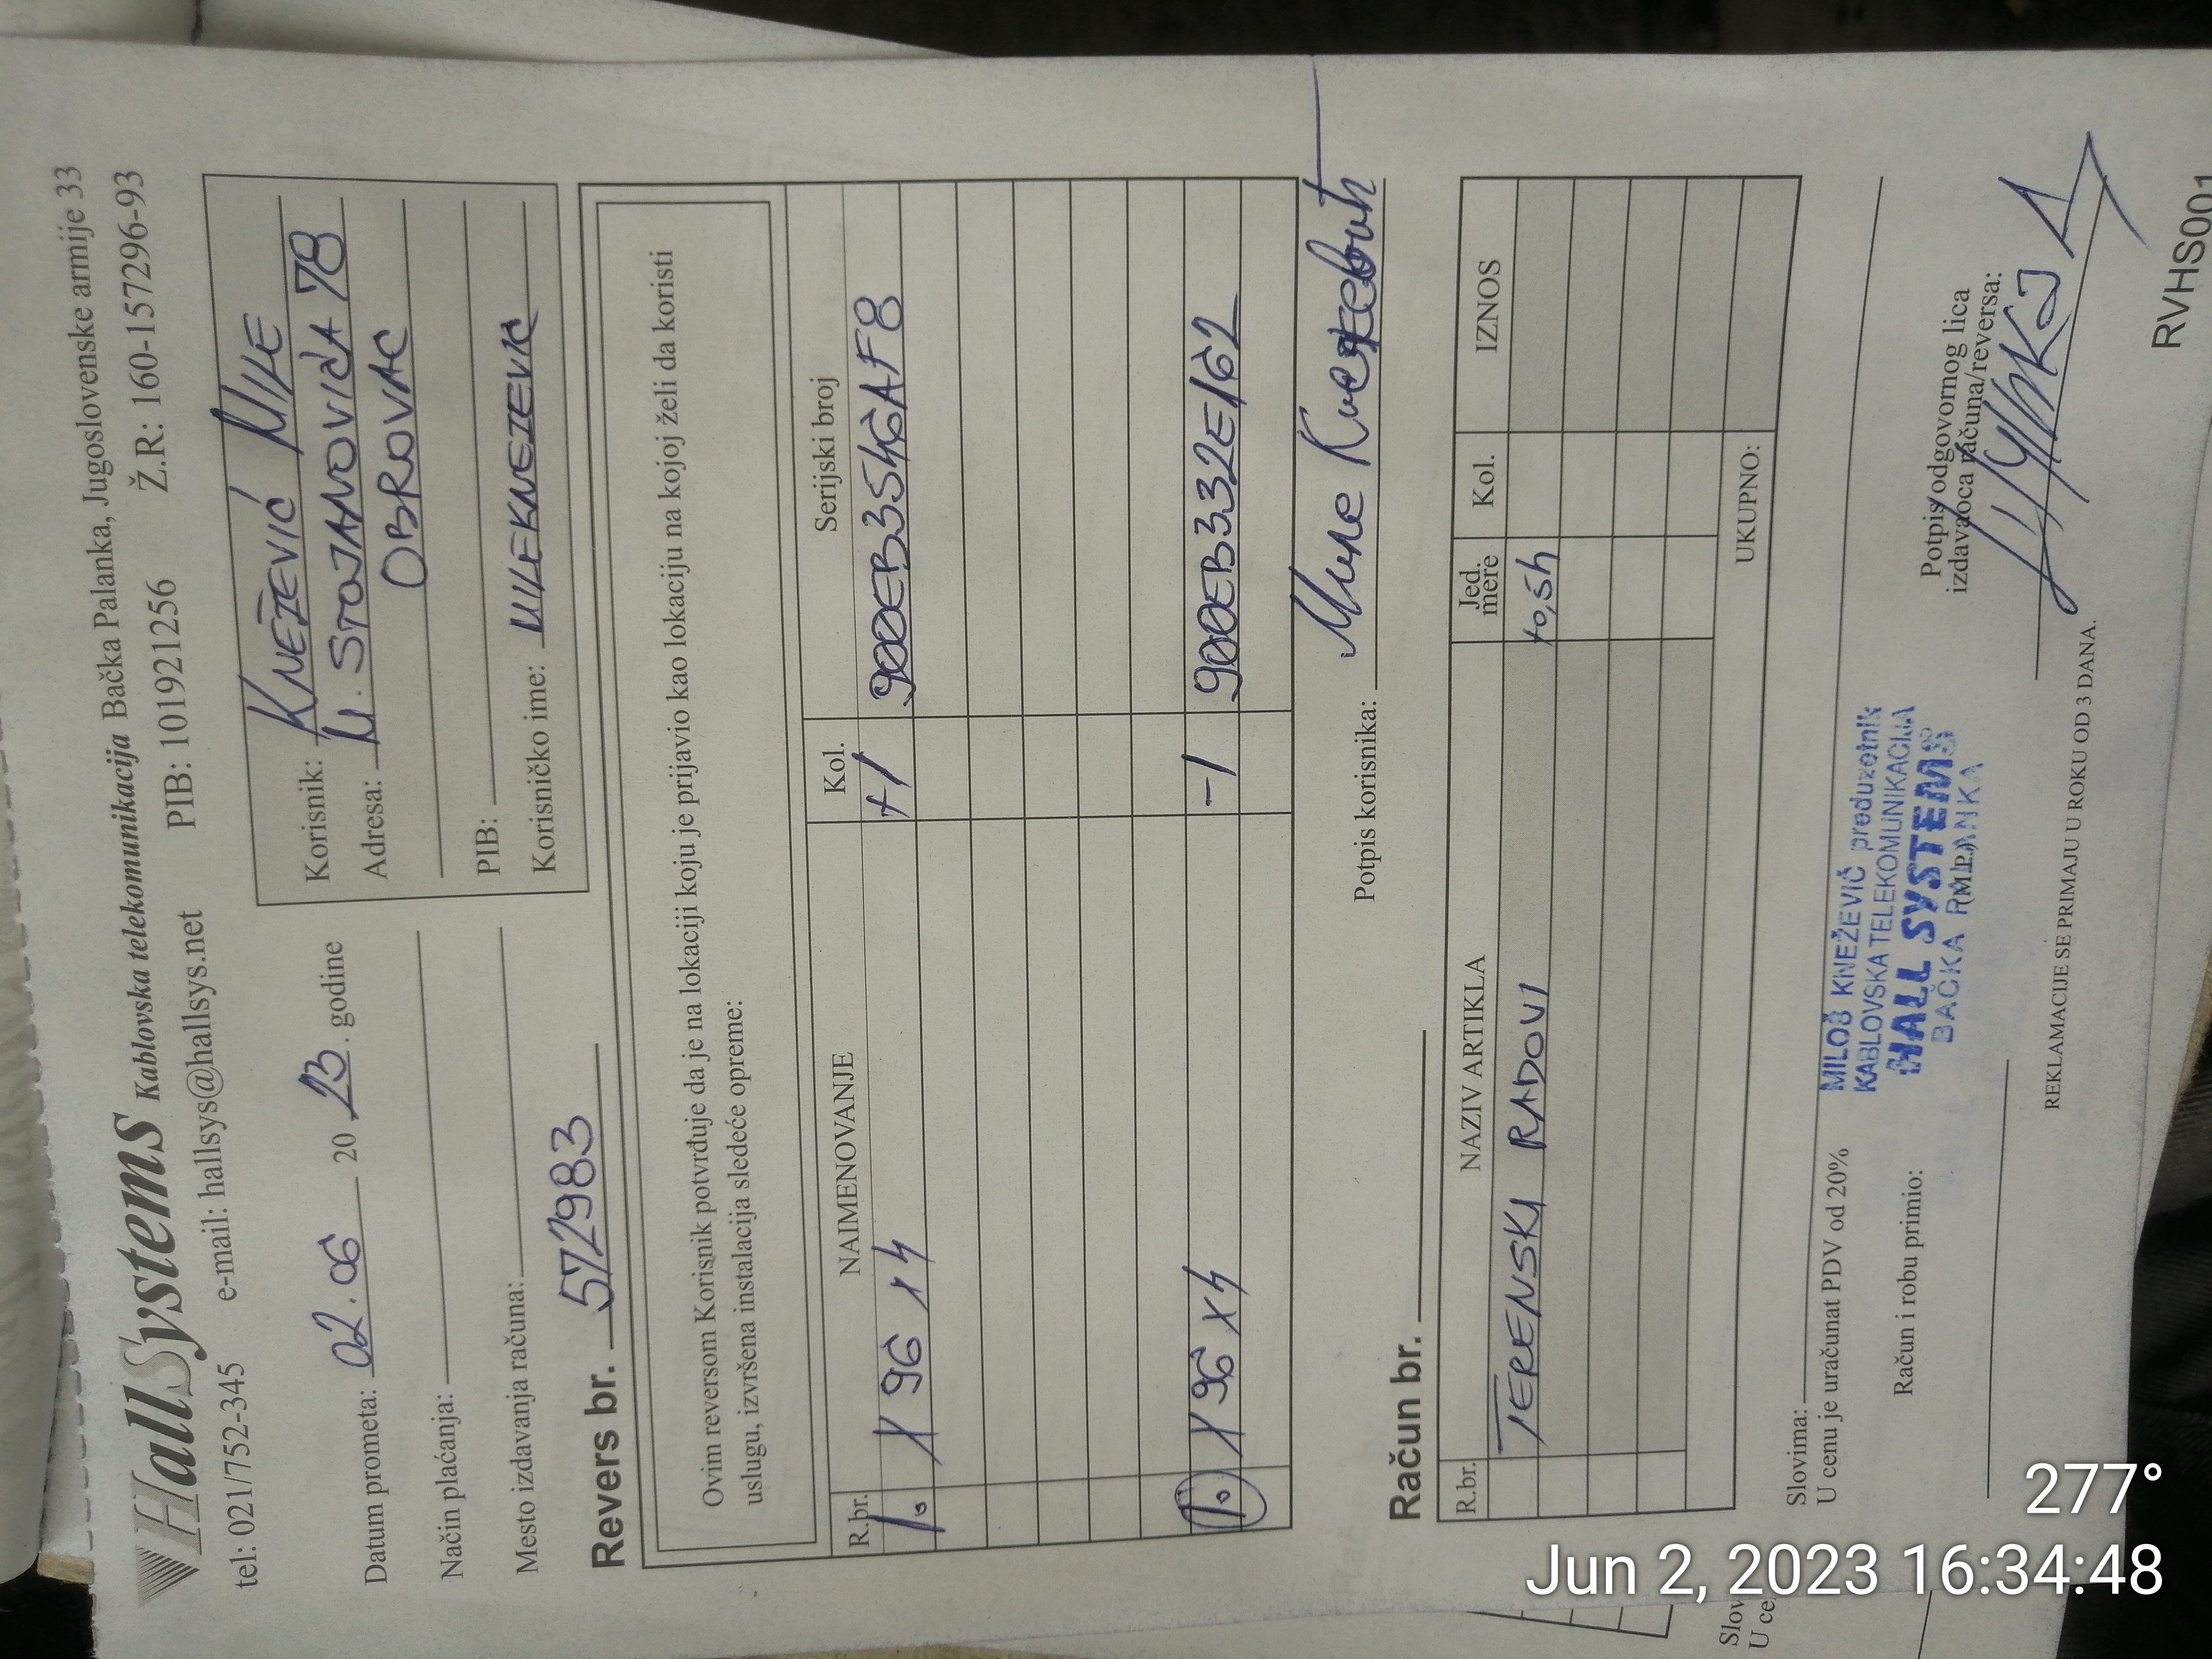 HallSystems Kablovska telekomunikacija Bačka Palanka, Jugoslovenske armije 33
tel: 021/752-345 e-mail: hallsys@hallsys.net PIB: 101921256 Ž.R: 160-157296-93
Datum prometa: 02.06 20 23. godine
Način plaćanja:
Mesto izdavanja računa:
Korisnik: KNEŽEVIĆ MILE
Adresa: M. STOJANOVIĆA 78
OBROVAC
PIB:
Korisničko ime: MILEKNEZEVIC
Revers br. 572983
Ovim reversom Korisnik potvrđuje da je na lokaciji koju je prijavio kao lokaciju na kojoj želi da koristi
uslugu, izvršena instalacija sledeće opreme:
R.br. NAIMENOVANJE Kol. Serijski broj
1. X96 X4 +1 900EB3546AF8
1. X96 X4 -1 900EB332E162
Potpis korisnika: Миле Кнежевић
Račun br.
R.br. NAZIV ARTIKLA Jed. mere Kol. IZNOS
TERENSKI RADOVI +0,5h
UKUPNO:
Slovima:
U cenu je uračunat PDV od 20%
Račun i robu primio:
MILOŠ KNEŽEVIĆ preduzetnik
KABLOVSKA TELEKOMUNIKACIJA
HALL SYSTEMS
BAČKA PALANKA
(M.P.)
Potpis odgovornog lica
izdavaoca računa/reversa:
REKLAMACIJE SE PRIMAJU U ROKU OD 3 DANA.
RVHS001
Slov
U ce
277°
Jun 2, 2023 16:34:48